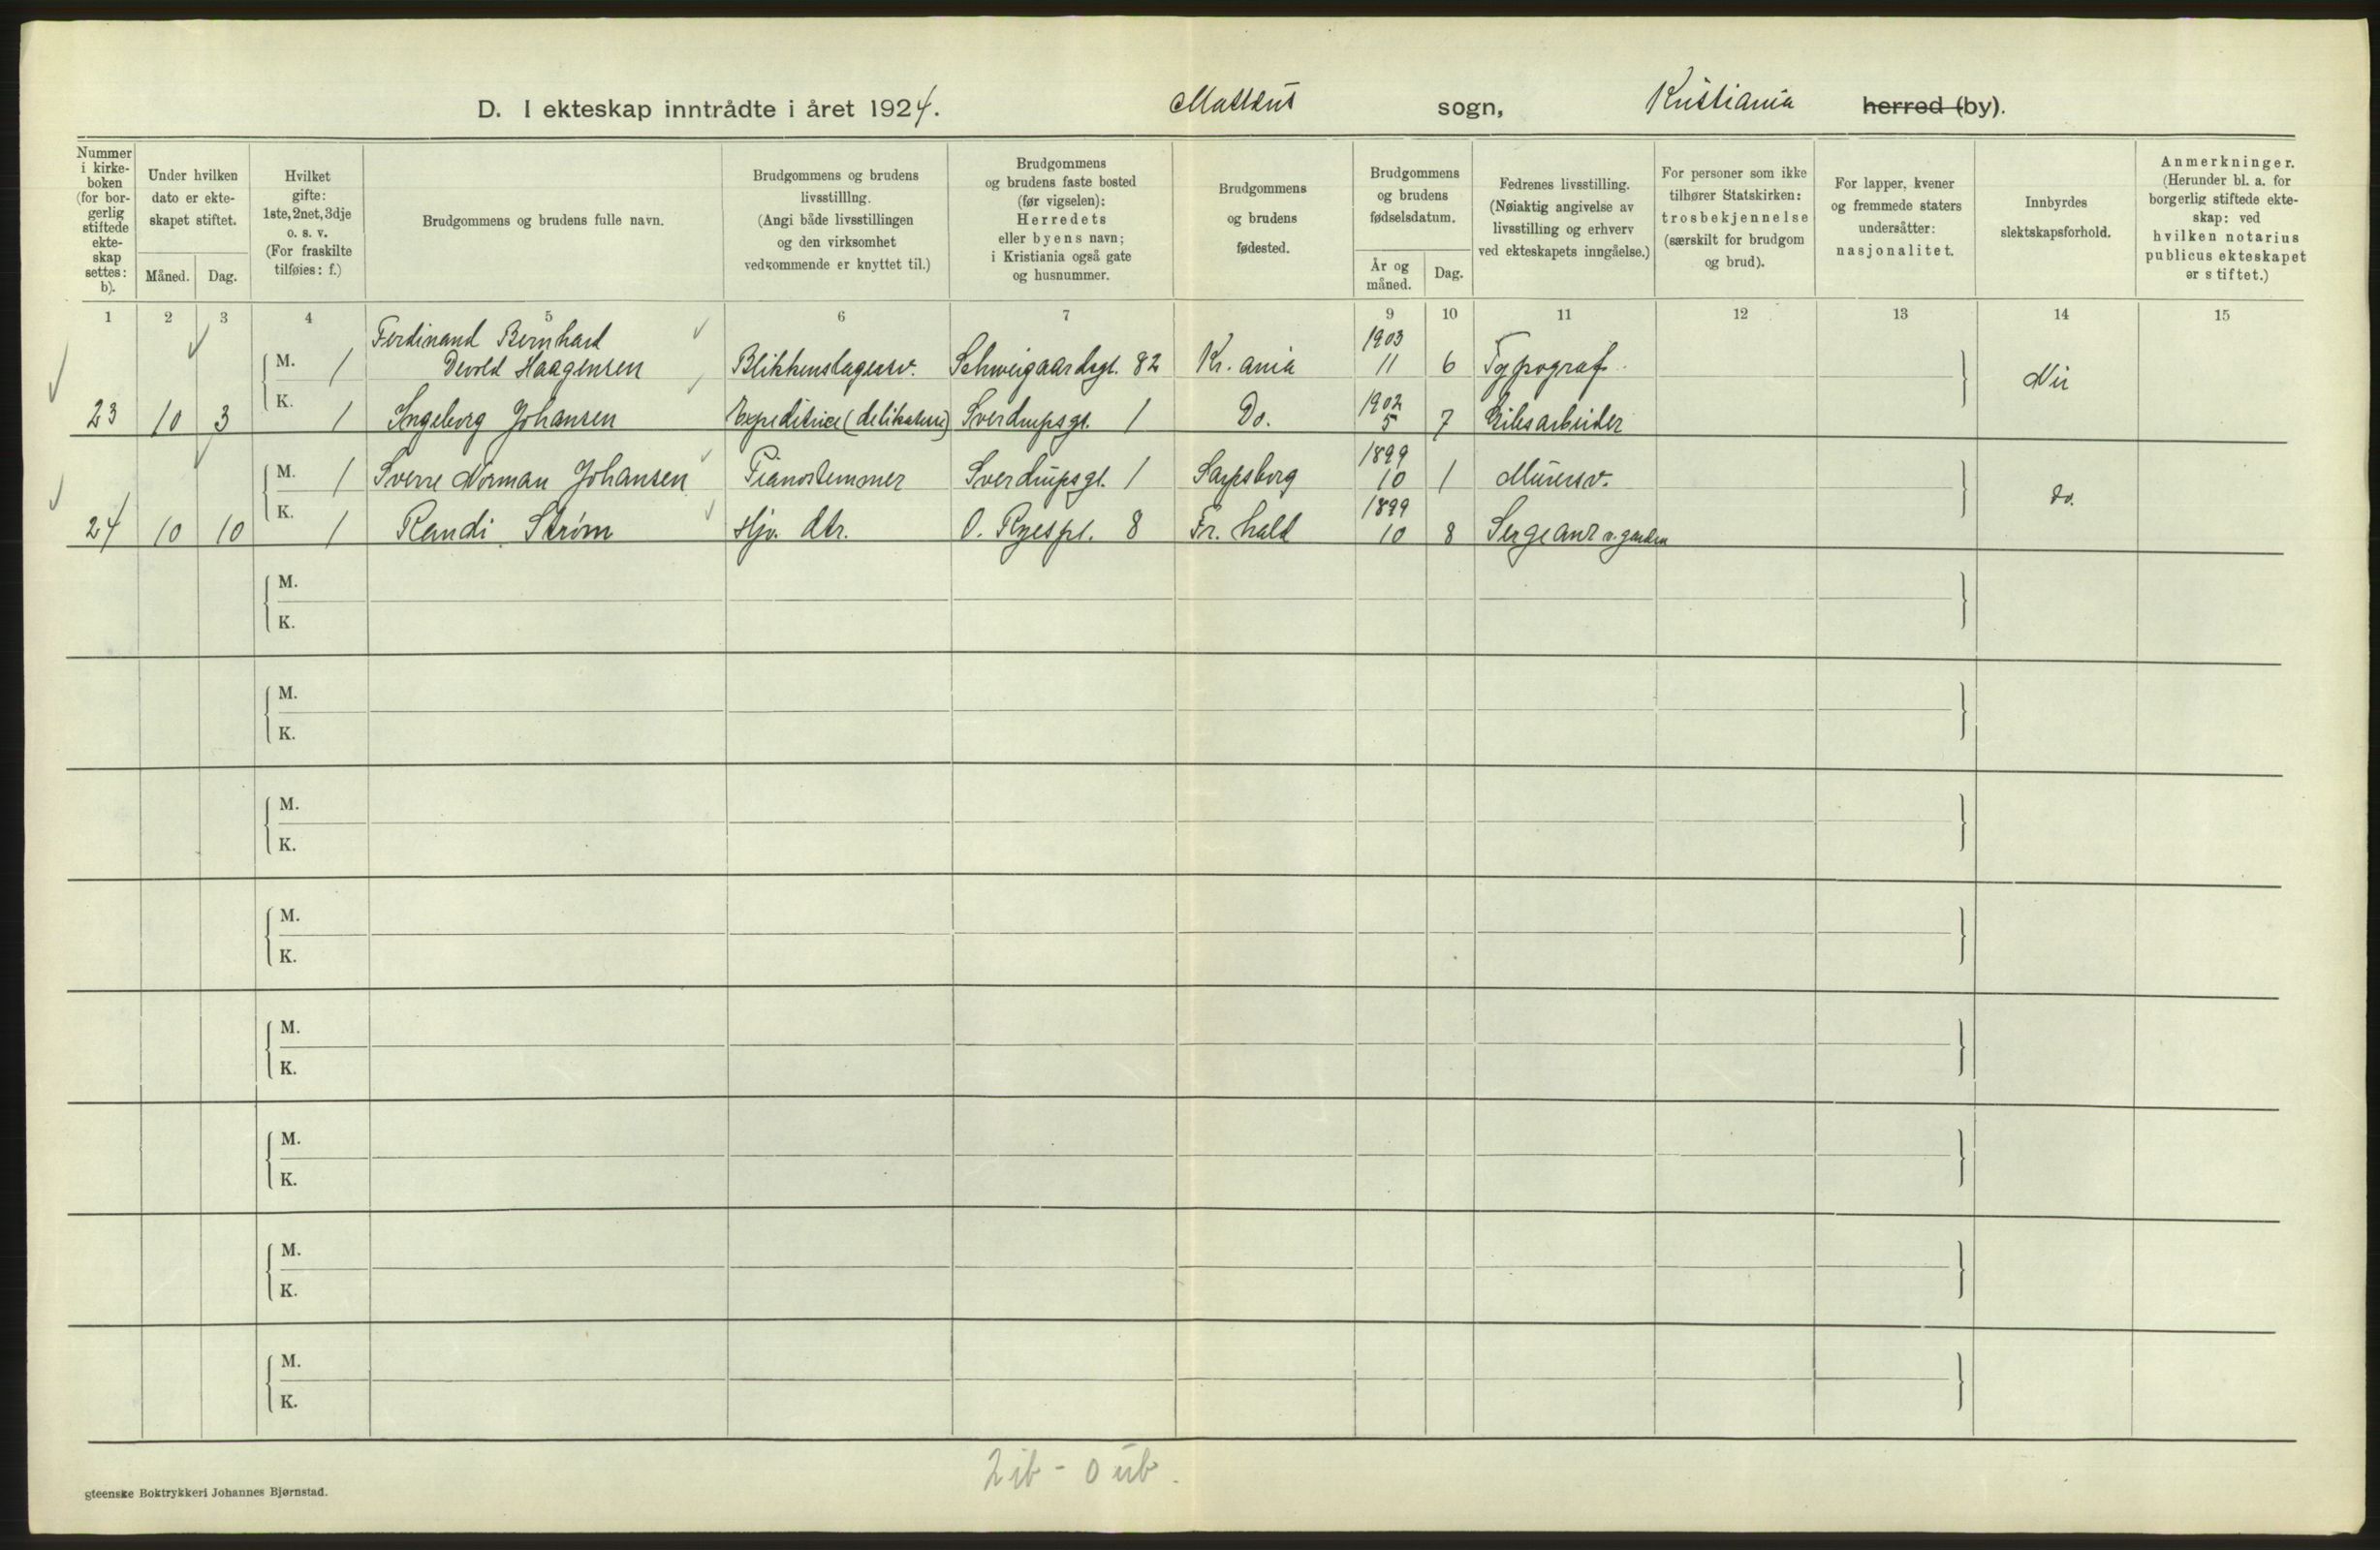 D. I ekteskap inntrådte i året 1924. Matteus sogn, Kristiania herred (by).
Nummer i kirke-boken (for bor-gerlig stiftede ekte-skap settes: b).
Under hvilken dato er ekte-skapet stiftet.
Måned. Dag.
Hvilket gifte: 1ste, 2net, 3dje o. s. v. (For fraskilte tilføies: f.)
Brudgommens og brudens fulle navn.
Brudgommens og brudens livsstillIng. (Angi både livsstillingen og den virksomhet vedkommende er knyttet til.)
Brudgommens og brudens faste bosted (før vigselen): Herredets eller byens navn; i Kristiania også gate og husnummer.
Brudgommens og brudens fødested.
Brudgommens og brudens fødselsdatum.
År og måned. Dag.
Fedrenes livsstilling. (Nøiaktig angivelse av livsstilling og erhverv ved ekteskapets inngåelse.)
For personer som ikke tilhører Statskirken: trosbekjennelse (særskilt for brudgom og brud).
For lapper, kvener og fremmede staters undersåtter: nasjonalitet.
Innbyrdes slektskapsforhold.
Anmerkninger. (Herunder bl. a. for borgerlig stiftede ekte-skap: ved hvilken notarius publicus ekteskapet er stiftet.)
1 2 3 4 5 6 7 9 10 11 12 13 14 15
Ferdinand Bernhard 1903
M. 1 Devold Haagensen Blikkenslagersv. Schweigaardsgt. 82 Kr. ania 11 6 Typograf Nei
1902
23 10 3 K. 1 Ingeborg Johansen Expeditrice (delikatesse) Sverdrupsgt. 1 Do. 5 7 Eilesarbeider
1899
M. 1 Sverre Norman Johansen Pianostemmer Sverdrupsgt. 1 Sarpsborg 10 1 Murersv. do.
1899
24 10 10 K. 1 Randi Strøm Hjv. dtr. O. Ryespl. 8 Fr. hald 10 8 Sergeant v. garden
M.
K.
M.
K.
M.
K.
M.
K.
M.
K.
M.
K.
M.
K.
M.
K.
2 ib - 0 ub.
gteenske Boktrykkeri Johannes Bjørnstad.